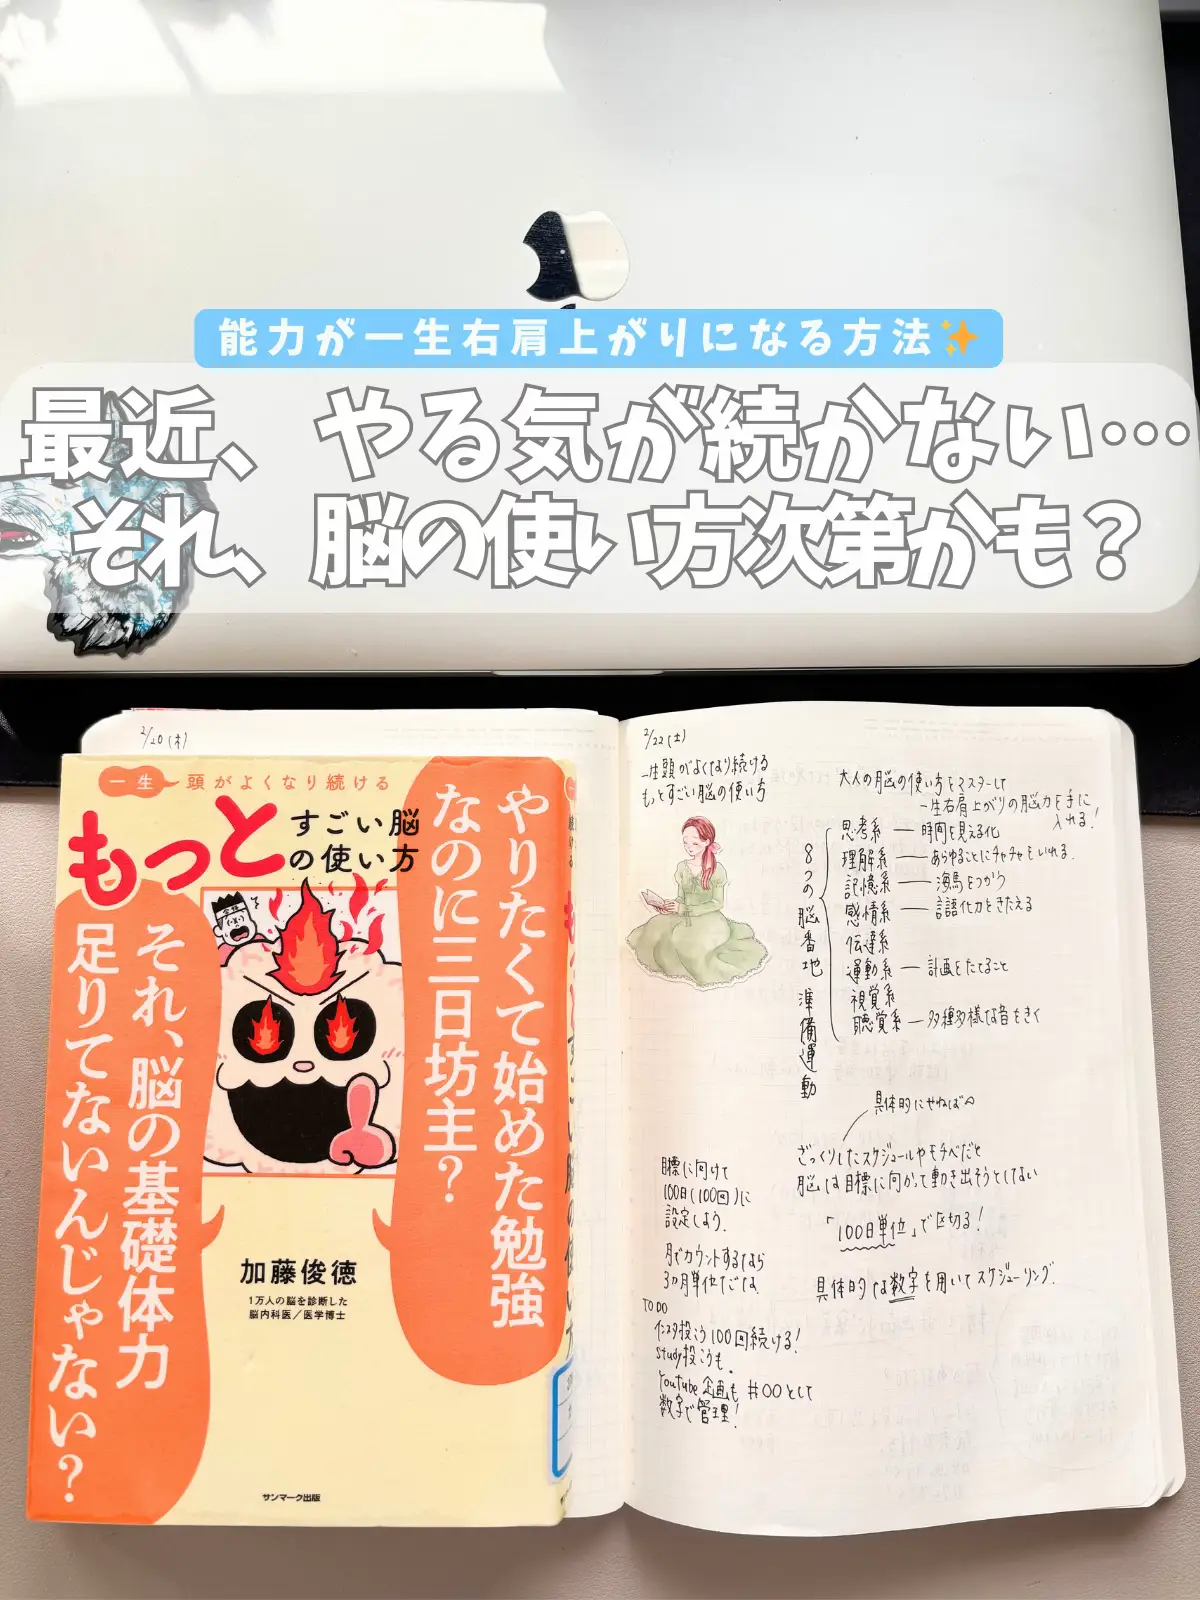 能力が一生右肩上がりになる方法✨
最近、やる気が続かない…
それ、脳の使い方次第かも？
2/20(木)
一生頭がよくなり続ける
もっと
すごい脳
の使い方
やりたくて始めた勉強
なのに三日坊主？
合格
それ、脳の基礎体力
足りてないんじゃない？
加藤俊徳
1万人の脳を診断した
脳内科医／医学博士
サンマーク出版
2/22(土)
一生頭がよくなり続ける
もっとすごい脳の使い方
大人の脳の使い方をマスターして
一生右肩上がりの脳力を手に
入れる!
8つの脳番地
準備運動
思考系 — 時間を見える化
理解系 — あらゆることにチャチャをいれる
記憶系 — 海馬をつかう
感情系 — 言語化力をきたえる
伝達系
運動系 — 計画をたてること
視覚系
聴覚系 — 多種多様な音をきく
具体的にやればOK
ざっくりしたスケジュールやモチベだと
脳は目標に向かって動き出そうとしない
「100日単位」で区切る!
具体的な数字を用いてスケジューリング.
目標に向けて
100日(100回)に
設定しよう.
月でカウントするなら
3カ月単位だな.
TO DO
インスタ投こう100回続ける!
Study投こうも.
Youtube企画も #〇〇として
数字で管理!